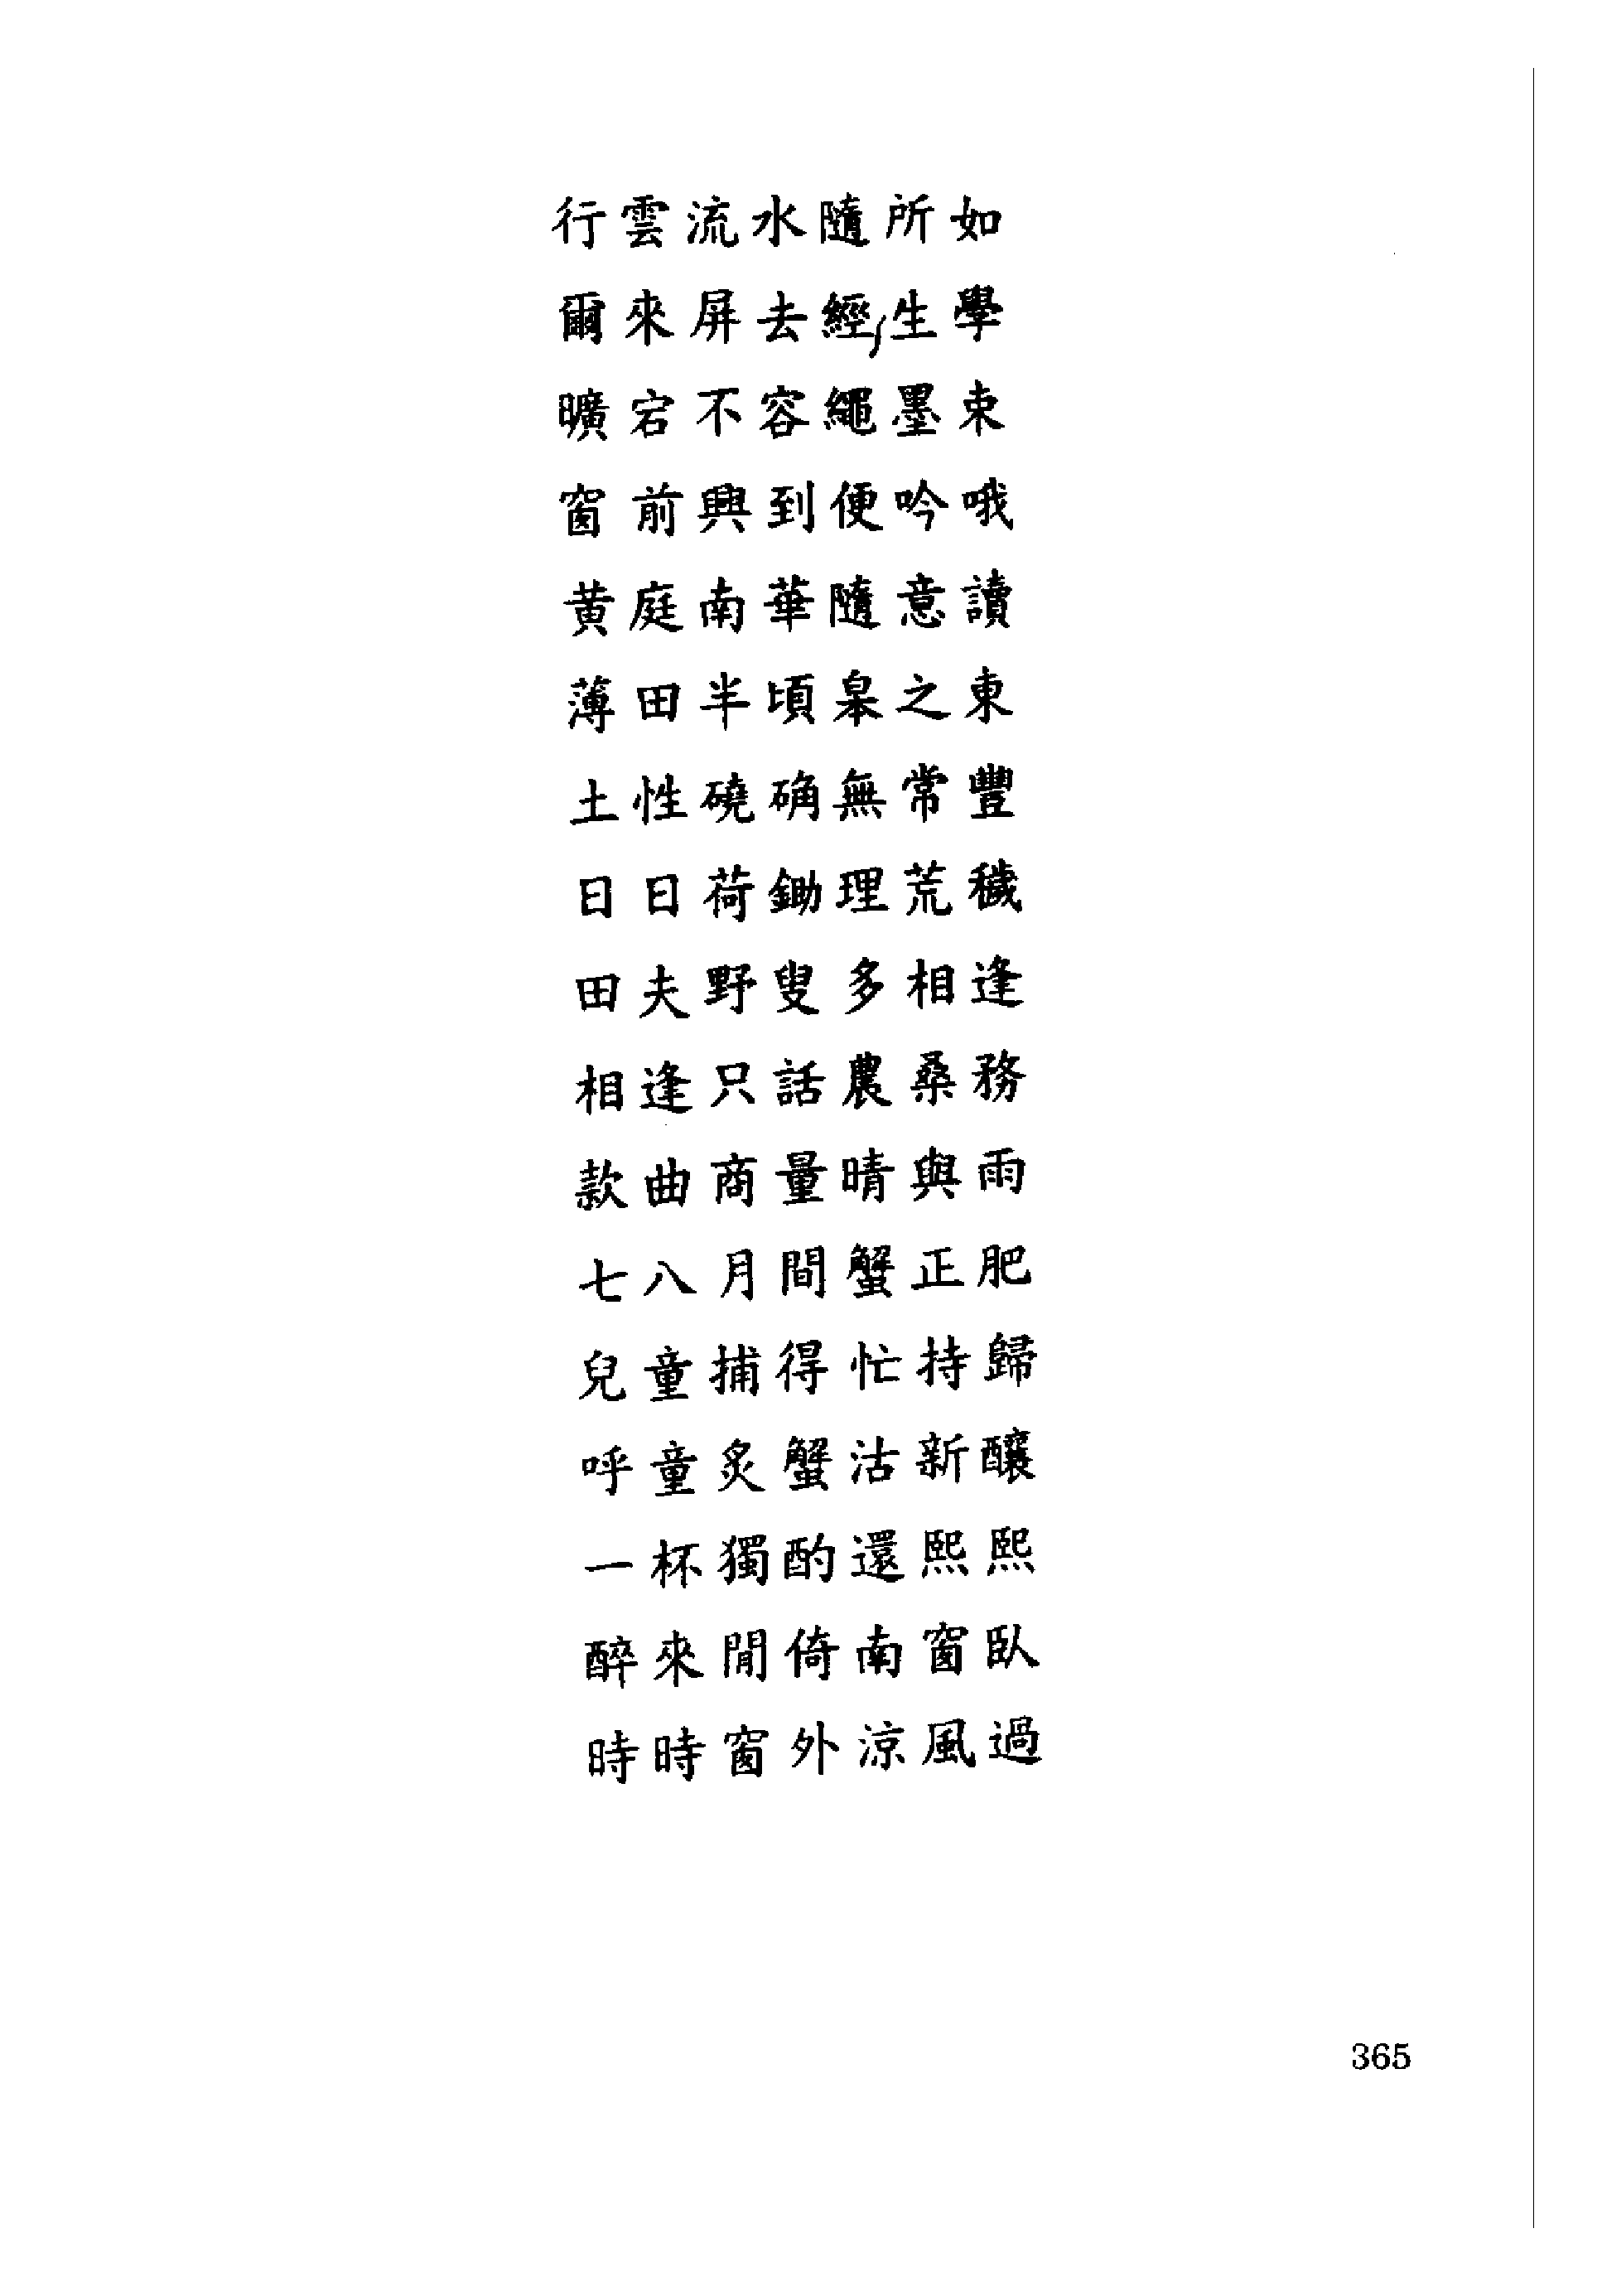 行雲流水隨所如
爾來屏去經生學
曠宕不容繩墨束
窗前興到便吟哦
黄庭南華隨意讀
薄田半頃皋之東
土性磽确無常豐
日日荷鋤理荒穢
田夫野叟多相逢
相逢只話農桑務
款曲商量晴與雨
七八月間蟹正肥
兒童捕得忙持歸
呼童炙蟹沽新釀
一杯獨酌還熙熙
醉來閒倚南窗臥
時時窗外涼風過
365